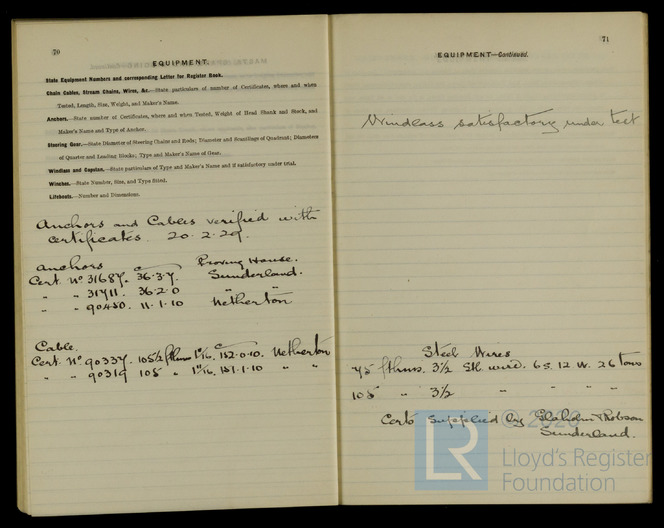 70
EQUIPMENT.
State Equipment Numbers and corresponding Letter for Register Book.
Chain Cables, Stream Chains, Wires, &c.—State particulars of number of Certificates, where and when
Tested, Length, Size, Weight, and Maker's Name.
Anchors.—State number of Certificates, where and when Tested, Weight of Head Shank and Stock, and
Maker's Name and Type of Anchor.
Steering Gear.—State Diameter of Steering Chains and Rods; Diameter and Scantlings of Quadrant; Diameters
of Quarter and Leading Blocks; Type and Maker's Name of Gear.
Windlass and Capstan.—State particulars of Type and Maker's Name and if satisfactory under trial.
Winches.—State Number, Size, and Type fitted.
Lifeboats.—Number and Dimensions.
Anchors and Cables verified with
certificates. 20.2.29.
Anchors Proving House.
Cert. No 31687. 36.3.7. Sunderland.
" " 31711. 36.2.0 "
" " 90450. 11.1.10 Netherton
Cable
Cert. No. 90337. 105½ fthms 1 11/16. 152.0.10. Netherton
" " 90319 105 " 1 11/16. 151.1.10 " "
71
EQUIPMENT—Continued.
Windlass satisfactory under test
Steel Wires
75 fthms. 3½ Stl wire. 6 S. 12 W. 26 tons
105 " 3½ " " "
Certs supplied by Glaholm & Robson
Sunderland.
© 2020
LR
Lloyd's Register
Foundation